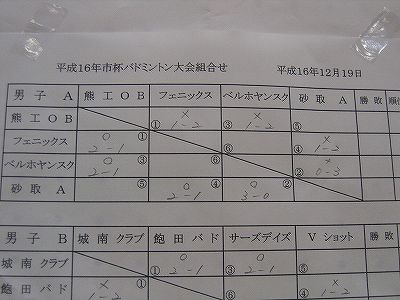 平成16年市杯バドミントン大会組合せ 平成16年12月19日
男子 A 熊工OB フェニックス ベルホヤンスク 砂取A 勝敗 順位
熊工OB ① × 1-2 ③ × 1-2 ⑤
フェニックス ○ ① 2-1 ⑥ ④ × 1-2
ベルホヤンスク ○ ③ 2-1 ⑥ ② × 0-3
砂取 A ⑤ ○ ④ 2-1 ○ ② 3-0
男子 B 城南クラブ 飽田バド サーズデイズ Vショット 勝敗
城南クラブ ① ○ 2-1 ③ ○ 2-1 ⑤
飽田バド × ① 1-2 ⑥ ④